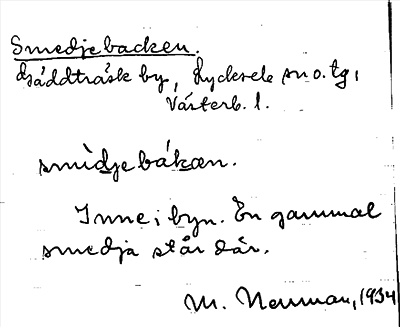 Smedjebacken.
Gäddträsk by, Lycksele sn o. tg,
Västerb. l.
smìdjebákan.
Inne i byn. En gammal
smedja står där.
M. Neuman, 1934